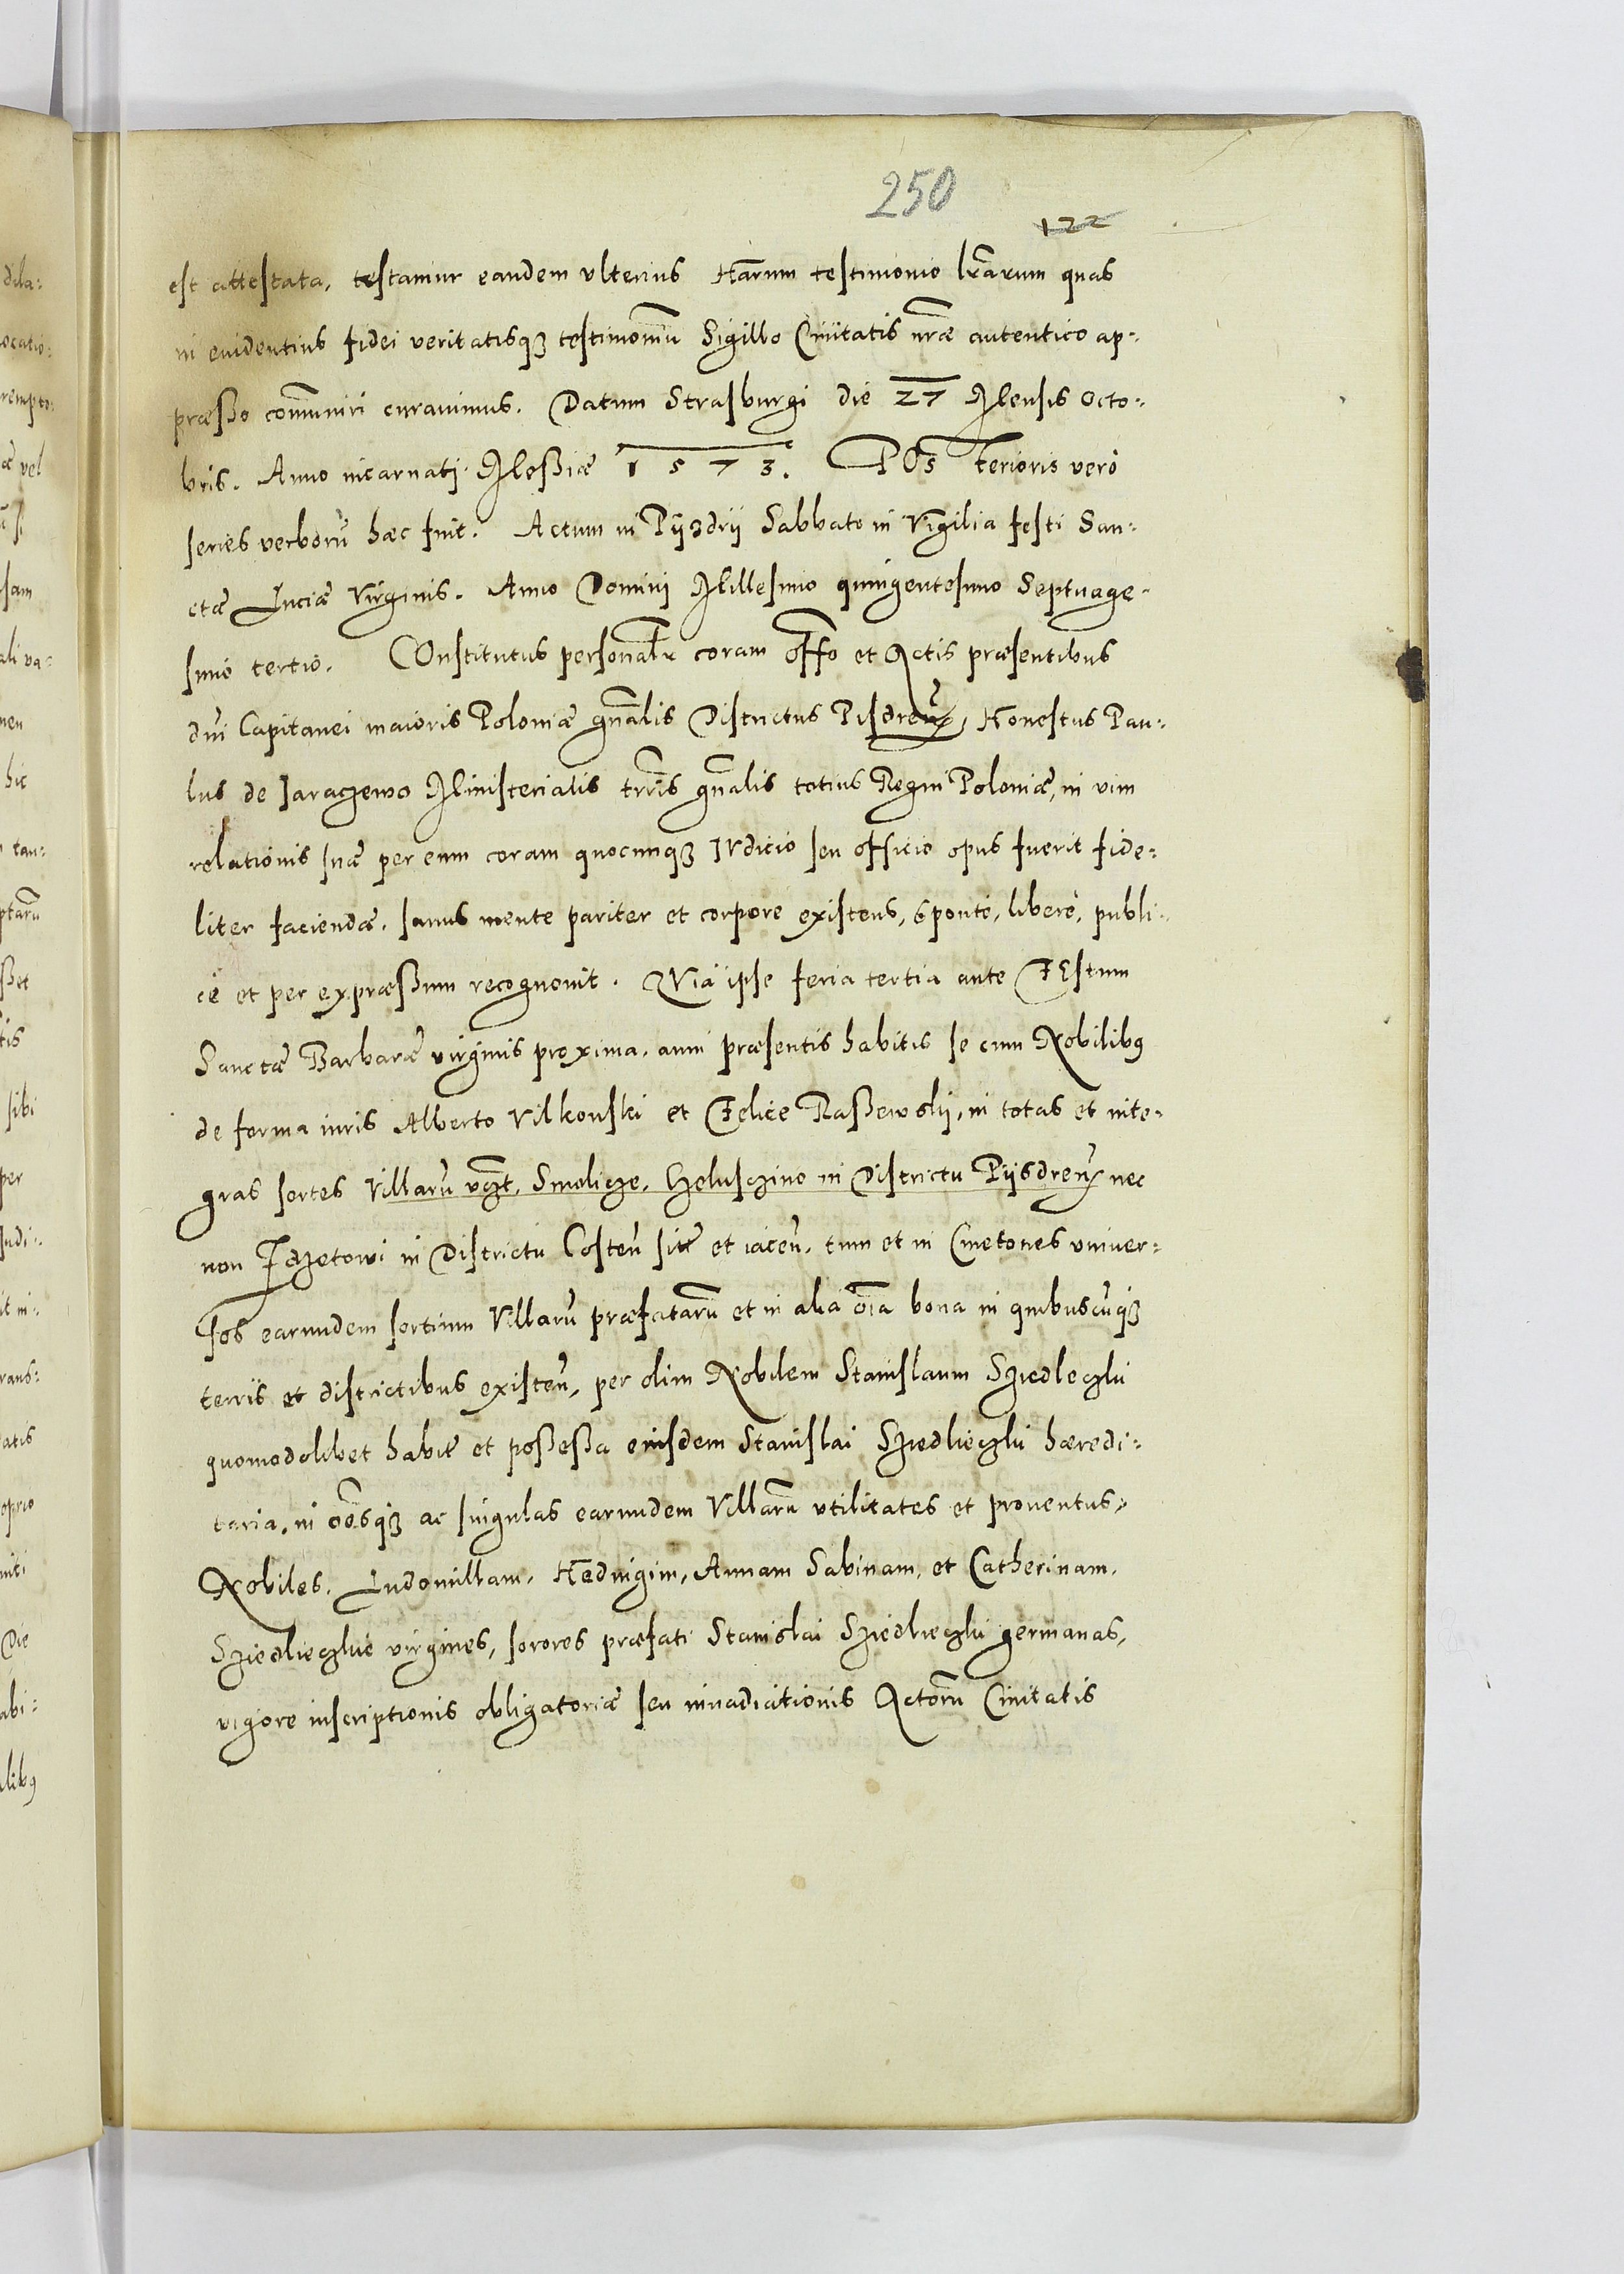 250
122
est attestata, testamur eandem ulterius Harum testimonio lrarum quas
in euidentius fidei veritatisqз testimoniū Sigillo Ciuitatis nræ autentico ap-
præsso communiri curauimus. Datum Strasburgi die 27 Mensis Octo-
bris. Anno incarnati Messiæ 1573. POsterioris verò
series verborū hæc fuit. Actum in Pÿzdrÿ Sabbato in Vigilia festi San-
ctæ Luciæ Virginis. Anno Domini Millesimo quingentesimo Septuage-
simo tertio. COnstitutus personalr coram offo et Actis præsentibus
dni Capitanei maioris Poloniæ gnalis Districtus Pisdren, Honestus Pau-
lus de Jaraczewo Ministerialis trris gnalis totius Regni Poloniæ, in vim
relationis suæ per eum coram quocunqз IVdicio seu officio opus fuerit fide-
liter faciendæ, sanus mente pariter et corpore existens, sponte, liberè, publi-
cè et per expræssum recognouit. QVia ipse feria tertia ante FEstum
Sanctæ Barbaræ virginis proxima, anni præsentis habitis se cum Nobilibꝰ
de forma iuris Alberto Vilkonski et Felice Rassewskÿ, in totas et inte-
gras sortes Villarū vczt, Smolicze, Czeluszino in Districtu Pÿsdren nec
non Idzetowi in Districtu Costeñ sitæ et iaceñ, tum et in Cmetones univer-
sos earundem sortium Villarū præfatarū et in alia oia bona in quibuscūqз
terris et districtibus existeñ, per olim Nobilem Stanislaum Sziedleczki
quomodolibet habitæ et possessa eiusdem Stanislai Sziedlieczki hæredi-
taria, in oesqз ac singulas earundem Villarū vtilitates et prouentus,
Nobiles, Ludomillam, Hedwigim, Annam Sabinam, et Catherinam,
Sziedlieczkie virgines, sorores præfati Stanislai Sziedlieczki germanas,
vigore inscriptionis obligatoriæ seu inuadiationis Actorū Ciuitatis